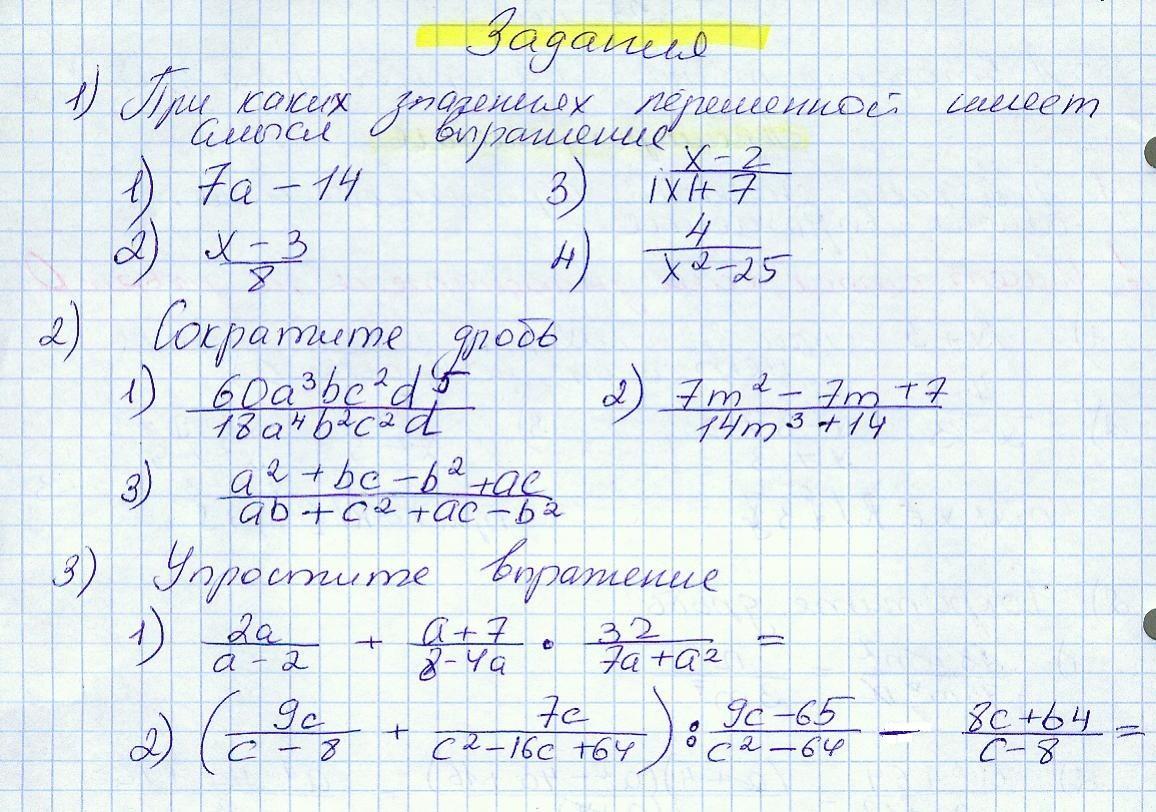 Задания
1) При каких значениях переменной имеет
смысл выражение
1) 7a - 14 3) (x - 2)/(|x| + 7)
2) (x - 3)/8 4) 4/(x² - 25)
2) Сократите дробь
1) 60a³bc²d⁵/18a⁴b²c²d 2) (7m² - 7m + 7)/(14m³ + 14)
3) (a² + bc - b² + ac)/(ab + c² + ac - b²)
3) Упростите выражение
1) 2a/(a - 2) + (a + 7)/(8 - 4a) · 32/(7a + a²) =
2) (9c/(c - 8) + 7c/(c² - 16c + 64)) : (9c - 65)/(c² - 64) - (8c + 64)/(c - 8) =